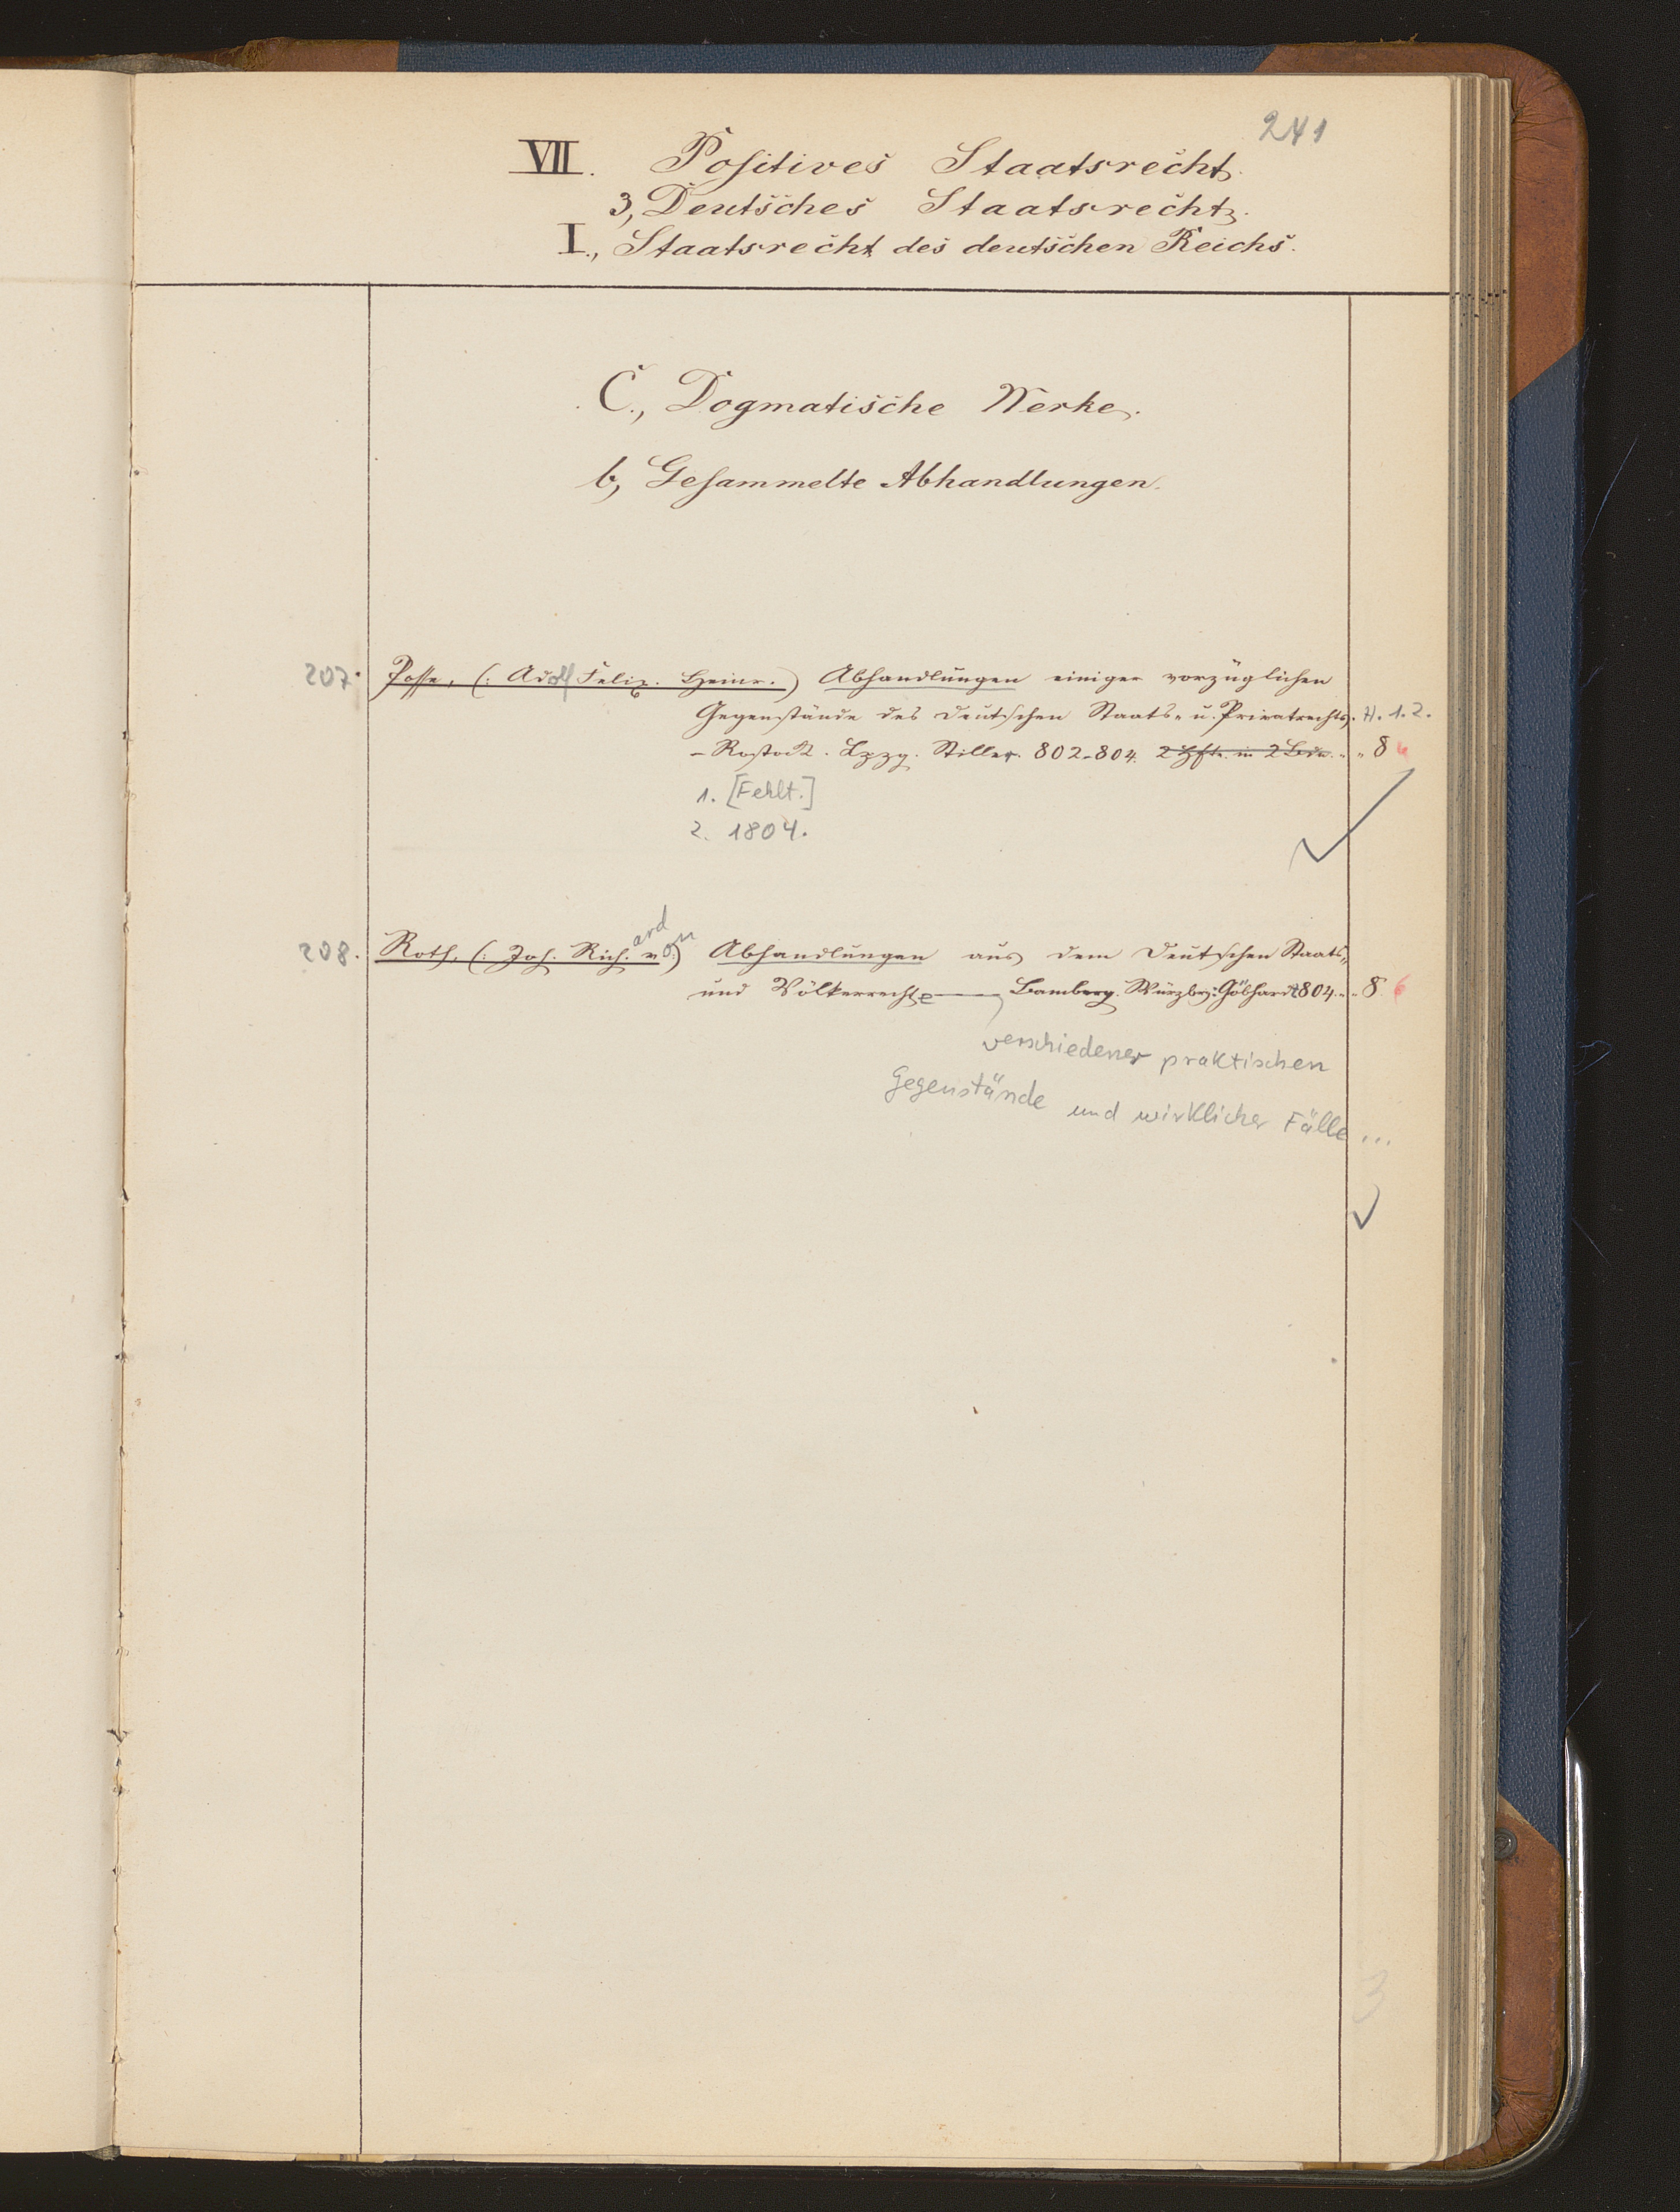 241
VII. Positives Staatsrecht.
3, Deutsches Staatsrecht.
I., Staatsrecht des deutschen Reichs.
C., Dogmatische Werke.
b, Gesammelte Abhandlungen.
207. Posse, (: Adolf Felix. Heinr. :) Abhandlungen einiger vorzüglichen
Gegenstände des deutschen Staats- u. Privatrechts. H. 1. 2.
– Rostock. Lpzg. Stiller. 802-804. 2 Hfte. in 2 Bdn. 8
1. [Fehlt.]
2. 1804.
208. Roth, (: Joh. Richard von :) Abhandlungen aus dem deutschen Staats-
und Völkerrechte — Bamberg. Würzbg: Göbhardt 804. 8 6
verschiedener praktischen
Gegenstände und wirklicher Fälle ...
3